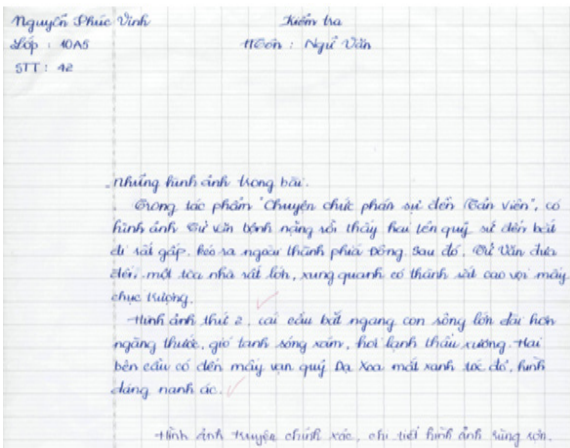 Nguyễn Phúc Vinh Kiểm tra
Lớp : 10A5 Môn : Ngữ Văn
STT : 42
- Những hình ảnh trong bài.
Trong tác phẩm "Chuyện chức phán sự đền Tản Viên", có
hình ảnh Tử Văn bệnh nặng rồi thấy hai tên quỷ sứ đến bắt
đi rất gấp, kéo ra ngoài thành phía Đông. Sau đó, Tử Văn đưa
đến một tòa nhà rất lớn, xung quanh có thành sắt cao vọi mấy
chục trượng.
Hình ảnh thứ 2, cái cầu bắt ngang con sông lớn dài hơn
ngàng thước, gió tanh sóng xám, hơi lạnh thấu xương. Hai
bên cầu có đến mấy vạn quỷ Dạ Xoa mắt xanh tóc đỏ, hình
dáng nanh ác.
Hình ảnh truyện chính xác, chi tiết hình ảnh rùng rợn.